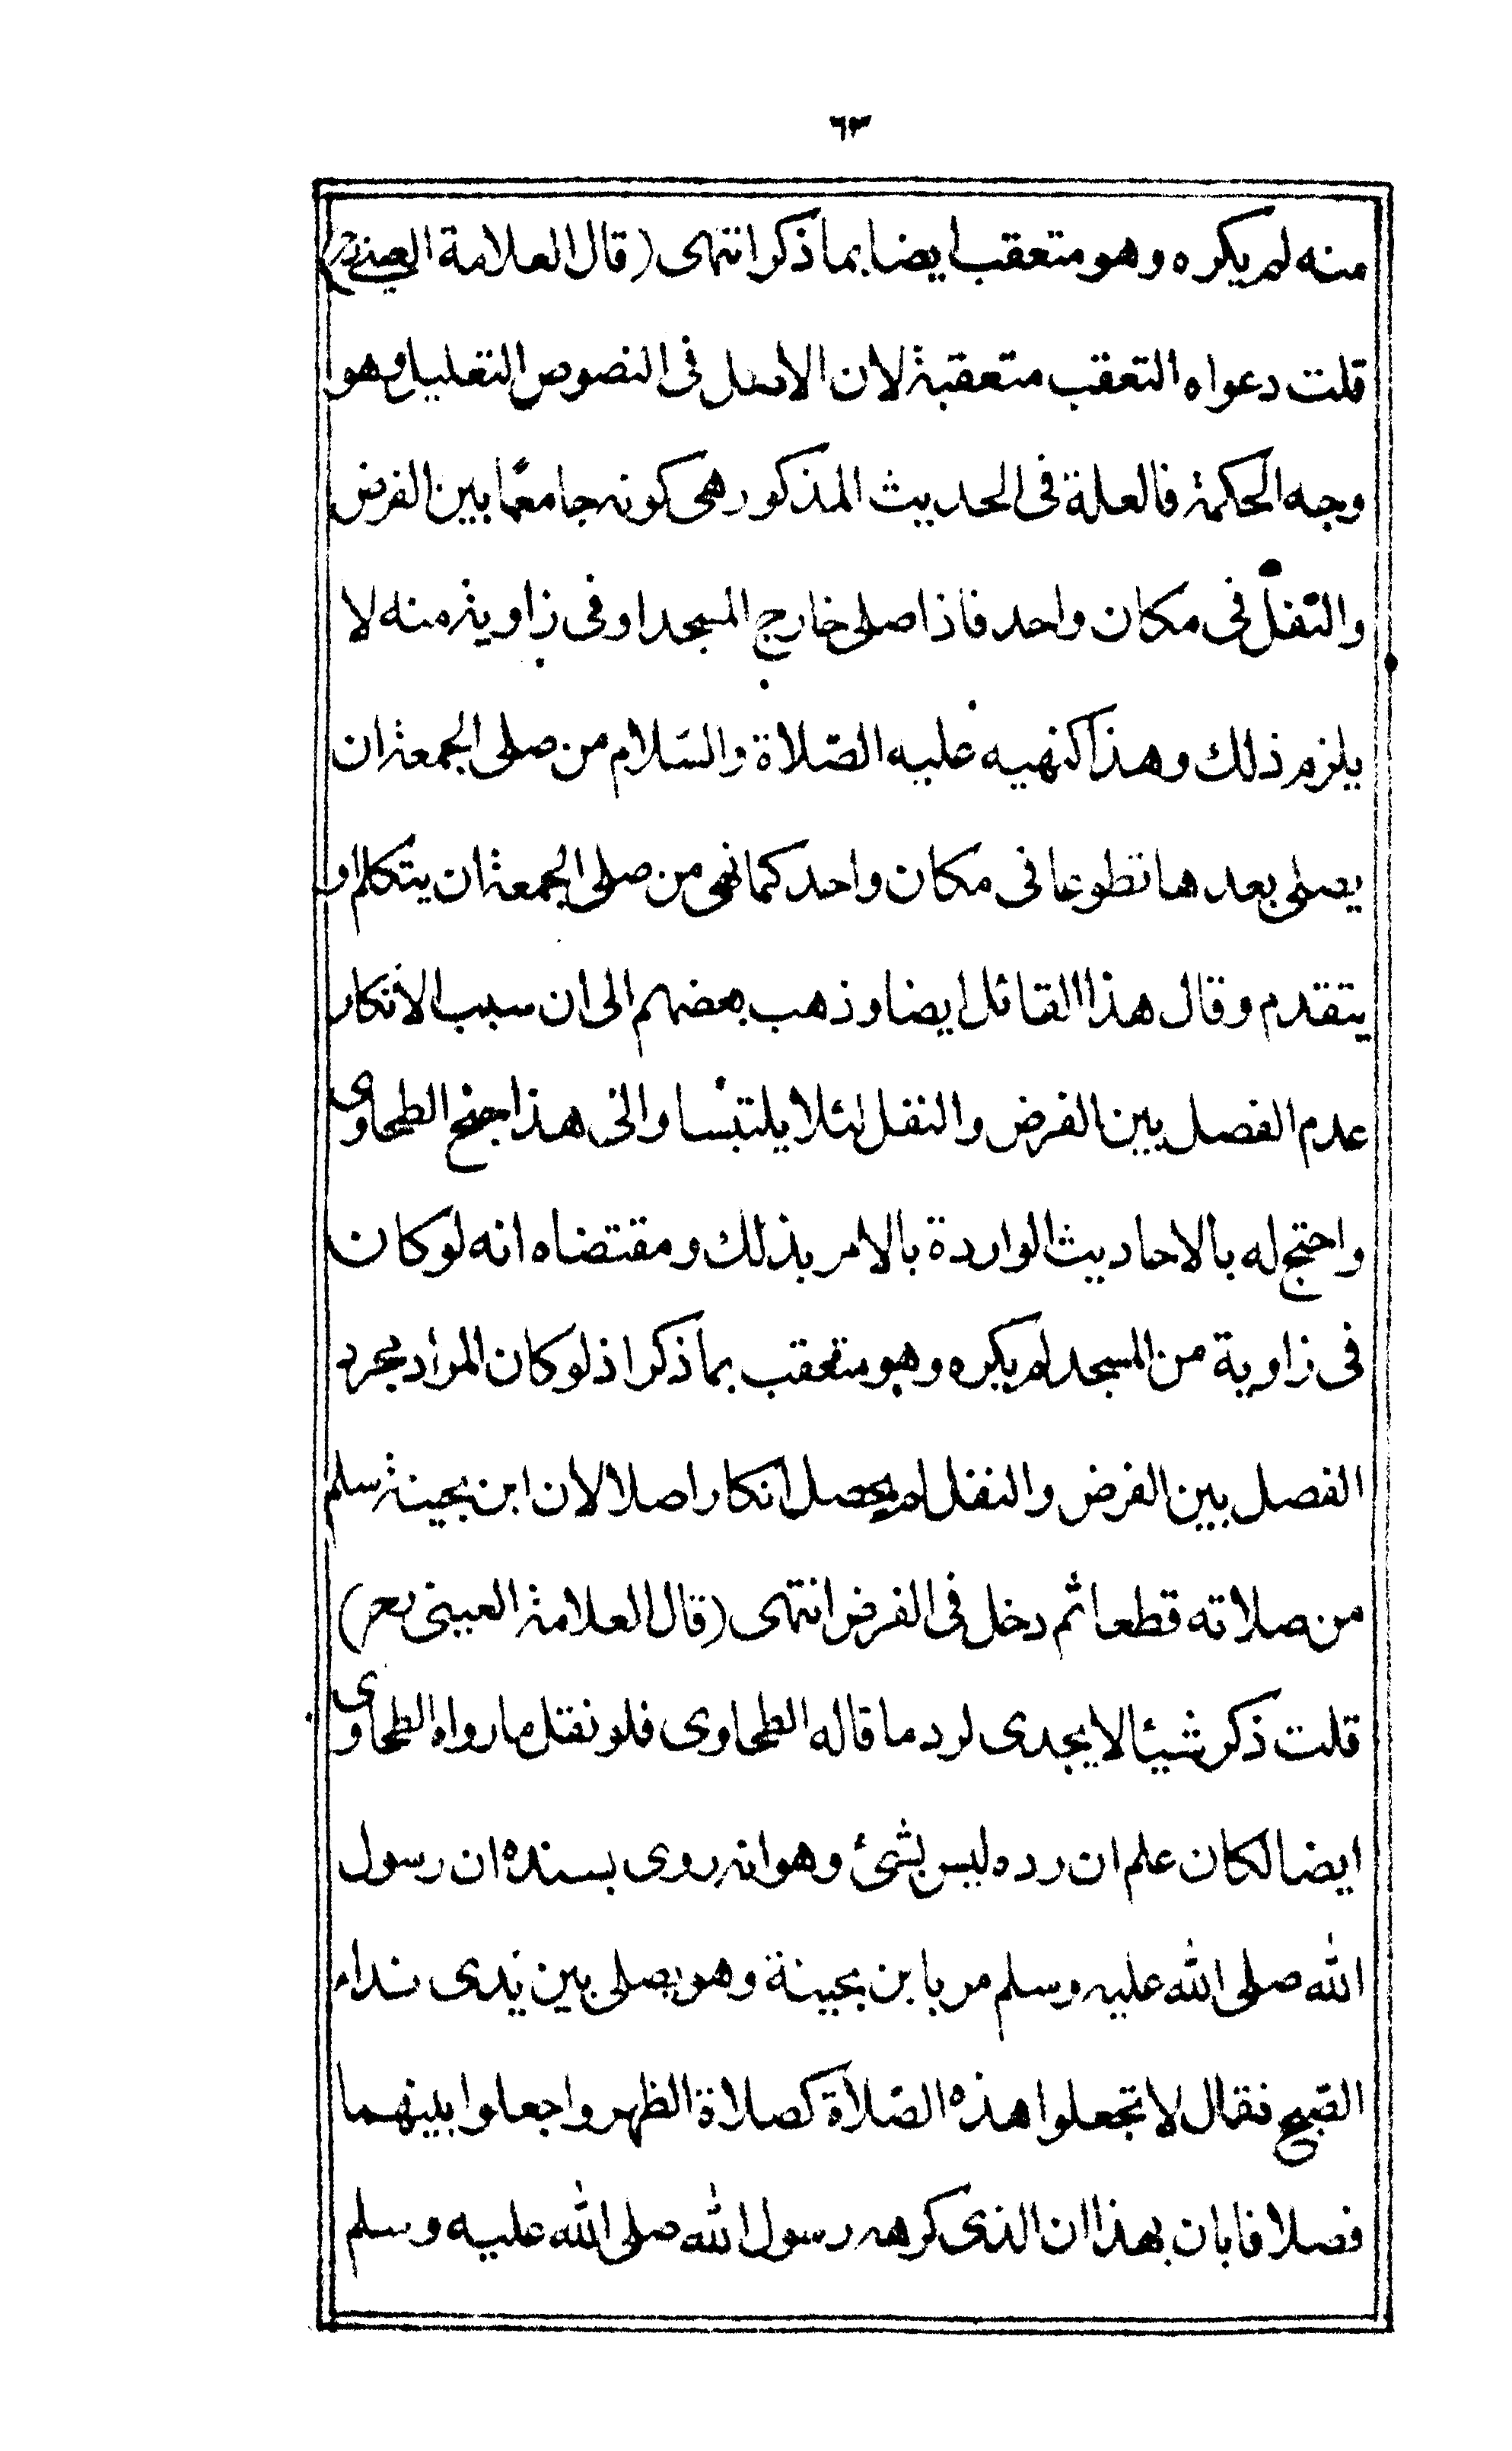 ٦٣
منه لم يكره وهو متعقب ايضا بما ذكر انتهى (قال العلامة العيني
قلت دعواه التعقب متعقبة لان الاصل فى النصوص التعليل وهو
وجه الحكمة فالعلة فى الحديث المذكور هى كونه جامعًا بين الفرض
والنفل فى مكان واحد فاذا صلى خارج المسجد او فى زاوية منه لا
يلزم ذلك وهذا كنهيه عليه الصّلاة والسّلام من صلى الجمعة ان
يصلى بعدها تطوعا فى مكان واحد كما نهى من صلى الجمعة ان يتكلم او
يتقدم وقال هذا القائل ايضا وذهب بعضهم الى ان سبب الانكار
عدم الفصل بين الفرض والنفل لئلا يلتبسا والى هذا جنح الطحاوى
واحتج له بالاحاديث الواردة بالامر بذلك ومقتضاه انه لو كان
فى زاوية من المسجد لم يكره وهو متعقب بما ذكر اذ لو كان المراد مجرد
الفصل بين الفرض والنفل لم يحصل انكار اصلا لان ابن بحينة سلم
من صلاته قطعا ثم دخل فى الفرض انتهى (قال العلامة العينى رحـ)
قلت ذكر شيئا لا يجدى لرد ما قاله الطحاوى فلو نقل ما رواه الطحاوى
ايضا لكان علم ان رده ليس بشئ وهو انه روى بسنده ان رسول
الله صلى الله عليه وسلم مر بابن بحينة وهو يصلى بين يدى نداء
الصّبح فقال لا تجعلوا هذه الصّلاة كصلاة الظهر واجعلوا بينهما
فصلا فابان بهذا ان الذى كرهه رسول الله صلى الله عليه وسلم